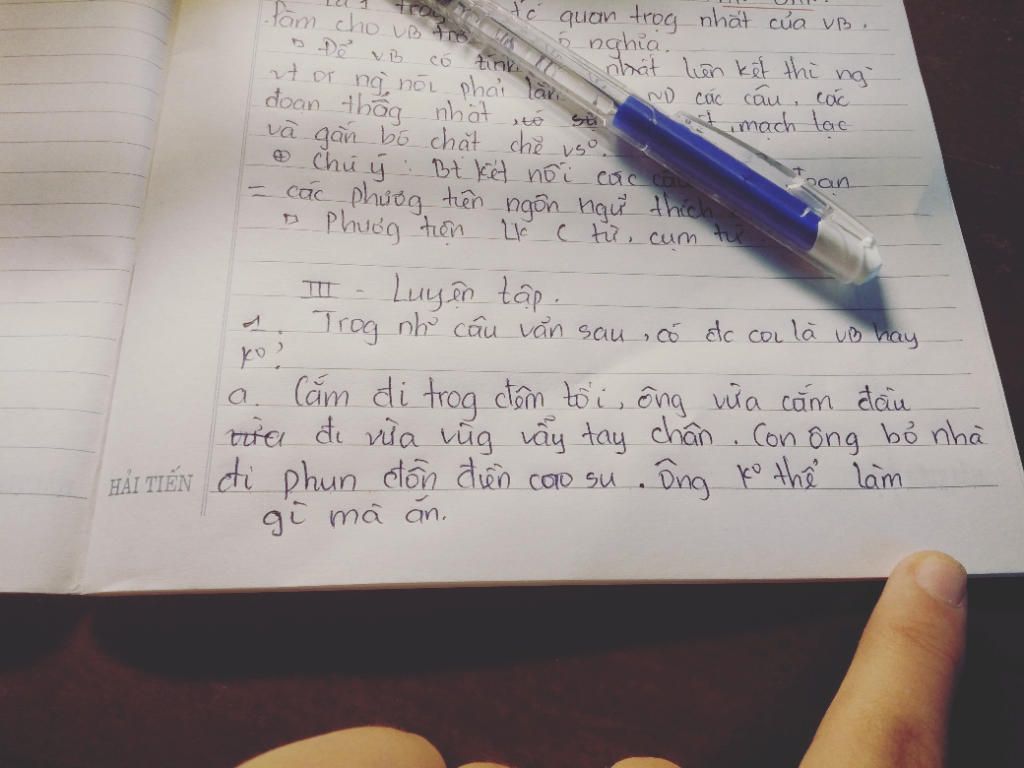 quan trọg nhất của VB.
làm cho VB nghĩa.
Để VB có tính nhất liên kết thì ng
vt or ng nói phải làm ND các câu, các
đoạn thốg nhất, mạch lạc
và gắn bó chặt chẽ vs⁰.
⊕ Chú ý: Bt kết nối các câu đoạn
= các phươg tiện ngôn ngữ thích
Phươg tiện LK C từ, cụm từ
III - Luyện tập.
1. Trog nhữ câu văn sau, có đc coi là VB hay
ko?
a. Cắm đi trog đêm tối, ông vừa cắm đầu
vừa đi vừa vùg vẩy tay chân. Con ông bỏ nhà
HẢI TIẾN đi phun đồn điền cao su. Ông ko thể làm
gì mà ăn.